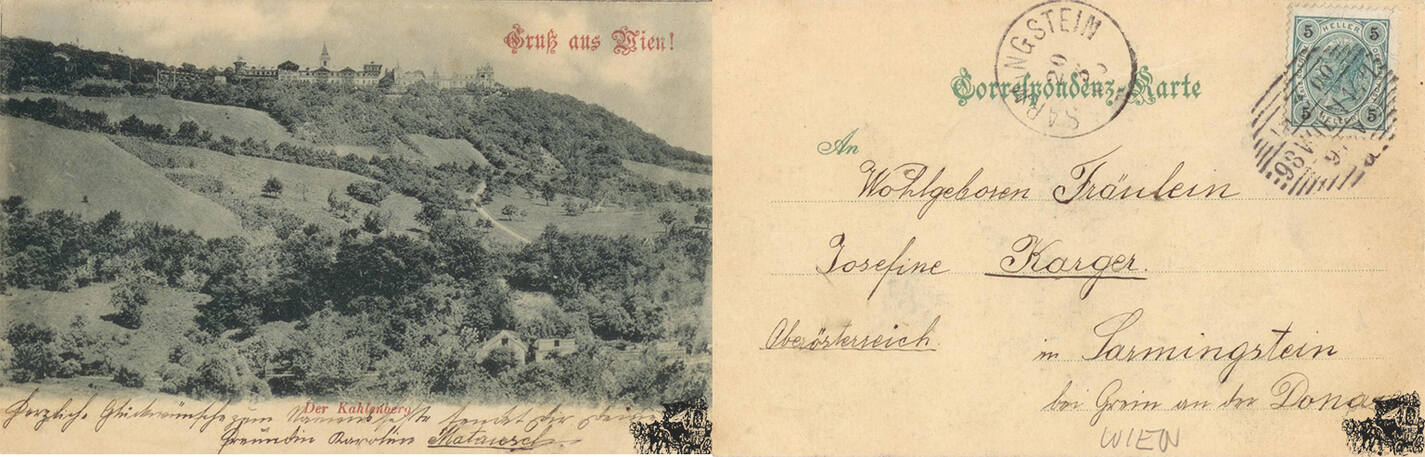 Gruß aus Wien!
Der Kahlenberg
Herzliche Glückwünsche zum Namensfeste sendet dir deine
Freundin Karoline
Correspondenz-Karte
SARMINGSTEIN
HELLER
5 5
5 5
HELLER
WIEN
An
Wohlgeboren Fräulein
Josefine Karger.
Oberösterreich.
in Sarmingstein
bei Grein an der Dona
WIEN